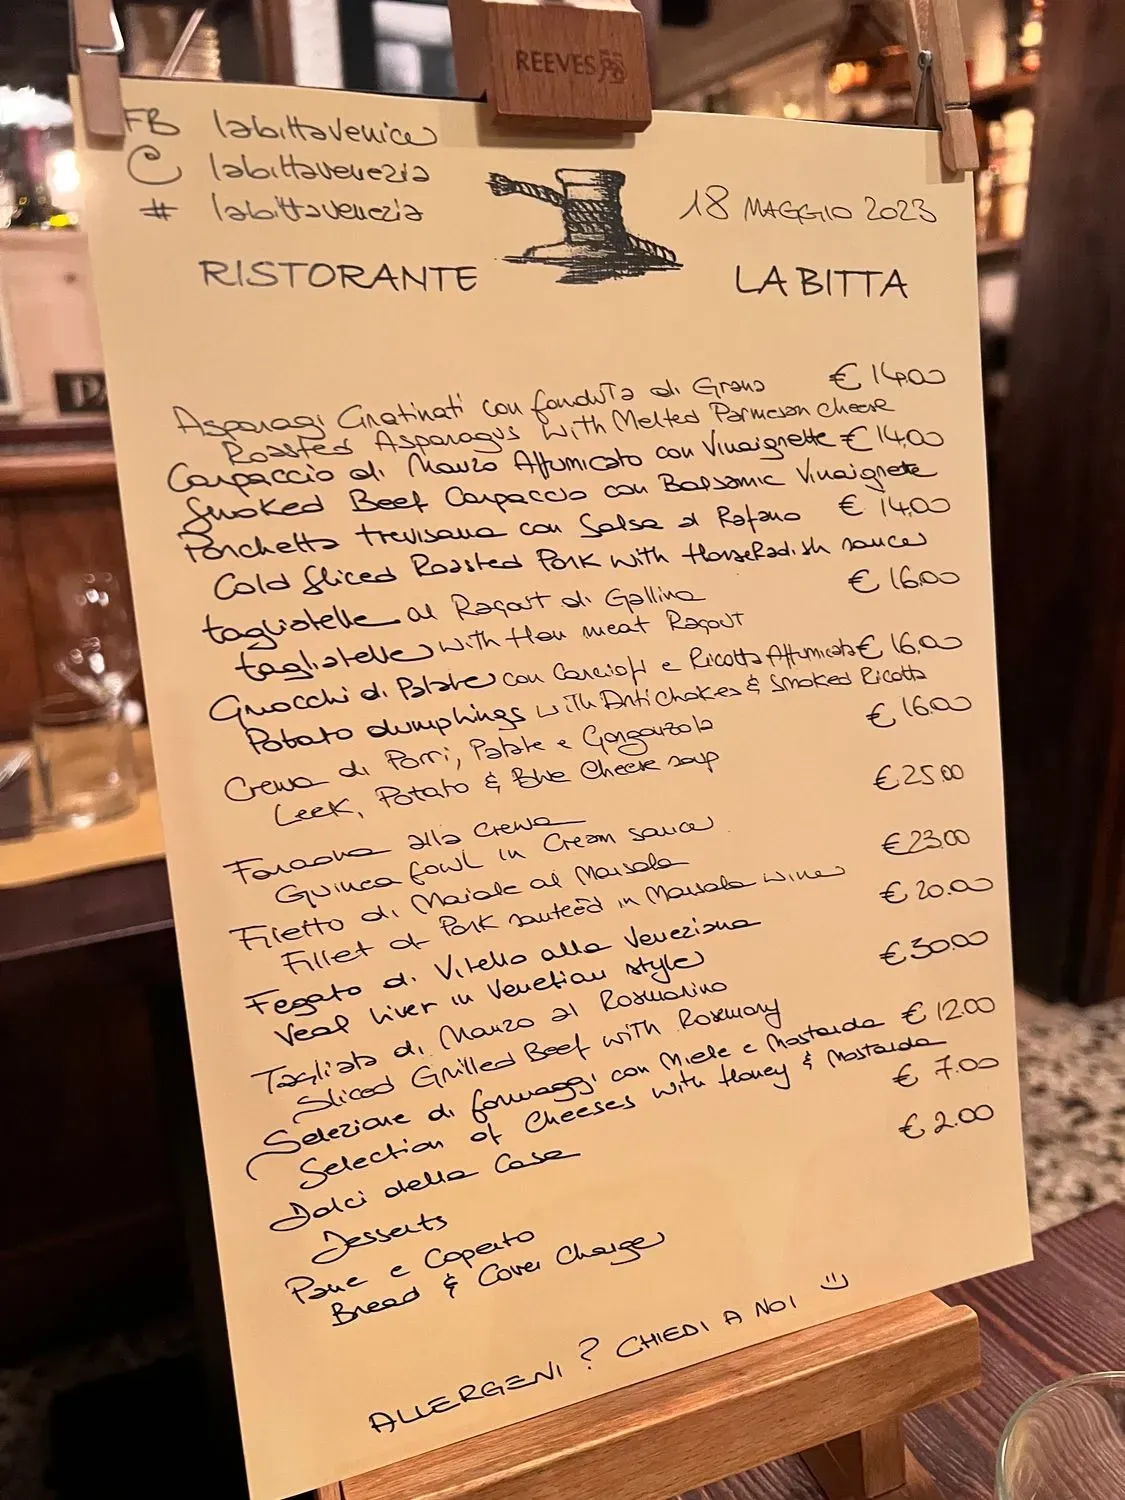 REEVES
FB labittavenice
@ labittavenezia
# labittavenezia
18 MAGGIO 2023
RISTORANTE LA BITTA
Asparagi Gratinati con fonduta di Grana € 14.00
Roasted Asparagus with Melted Parmesan cheese
Carpaccio di Manzo Affumicato con Vinaignette € 14.00
Smoked Beef Carpaccio con Balsamic Vinaigrette
Porchetta trevisana con Salsa al Rafano € 14.00
Cold Sliced Roasted Pork with HorseRadish sauce
tagliatelle al Ragout di Gallina € 16.00
tagliatelle with Hen meat Ragout
Gnocchi di Patate con Carciofi e Ricotta Affumicata € 16.00
Potato dumphings with Artichokes & Smoked Ricotta
Crema di Porri, Patate e Gorgonzola € 16.00
Leek, Potato & Blue Cheese soup
Faraona alla Crema € 25.00
Guinea fowl in Cream sauce
Filetto di Maiale al Marsala € 23.00
Fillet of Pork sauteed in Marsala wine
Fegato di Vitello alla Veneziana € 20.00
Veal Liver in Venetian style
Tagliata di Manzo al Rosmarino € 30.00
Sliced Grilled Beef with Rosemary
Selezione di formaggi con Miele e Mostarda € 12.00
Selection of Cheeses with Honey & Mostarda
Dolci della Casa € 7.00
Desserts
Pane e Coperto € 2.00
Bread & Cover Charge
ALLERGENI? CHIEDI A NOI